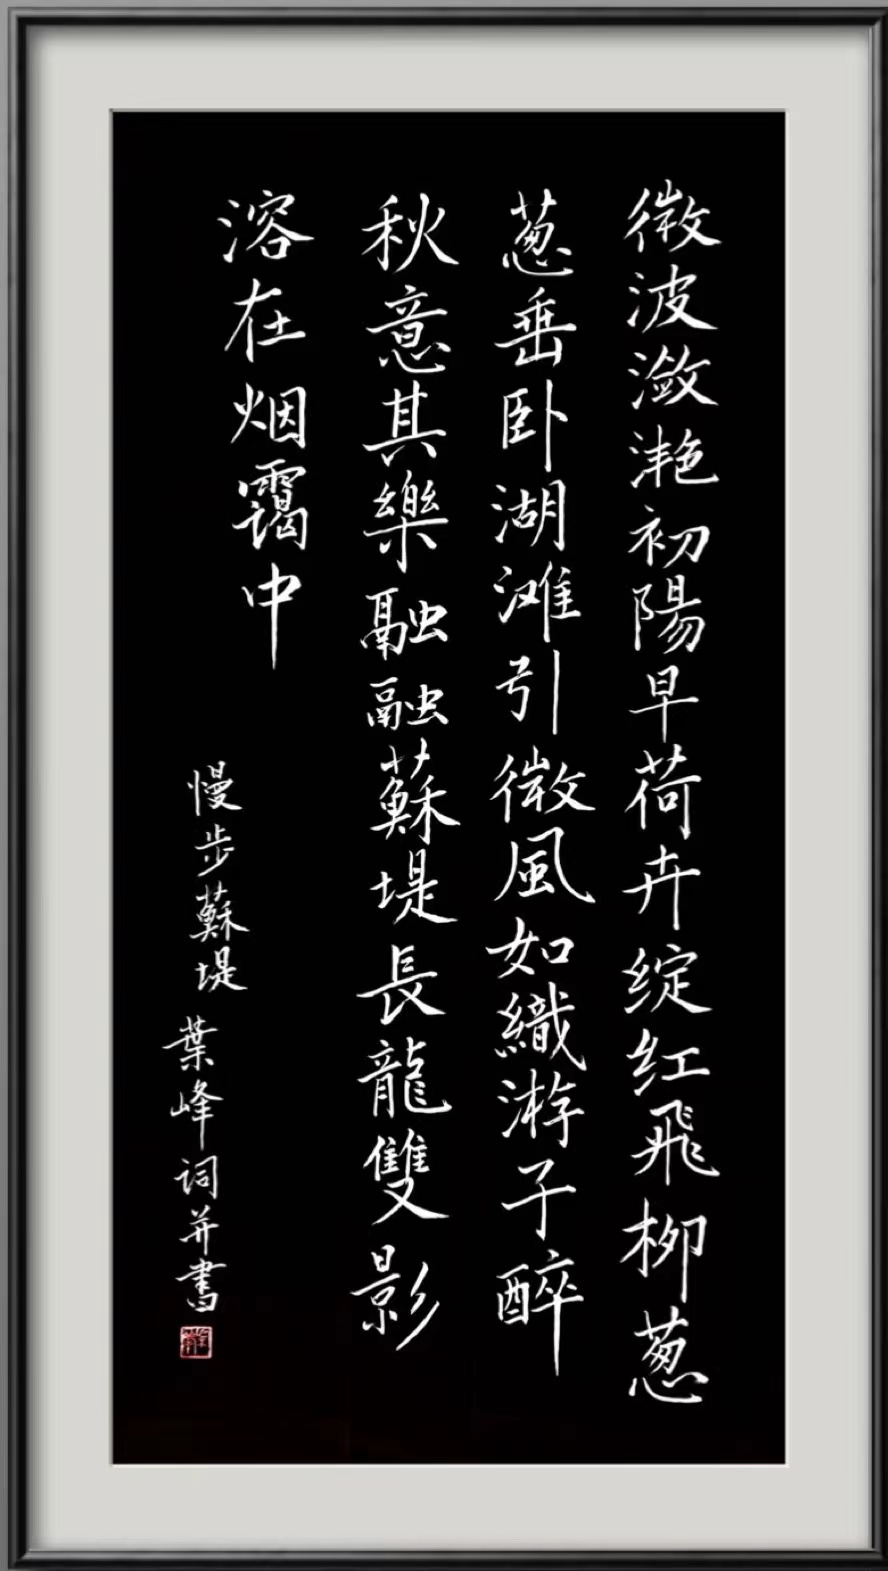 微波潋滟初陽早荷卉绽红飛柳葱
葱垂卧湖滩引微風如織游子醉
秋意其樂融融蘇堤長龍雙影
溶在烟霭中
慢步蘇堤
葉峰词并書